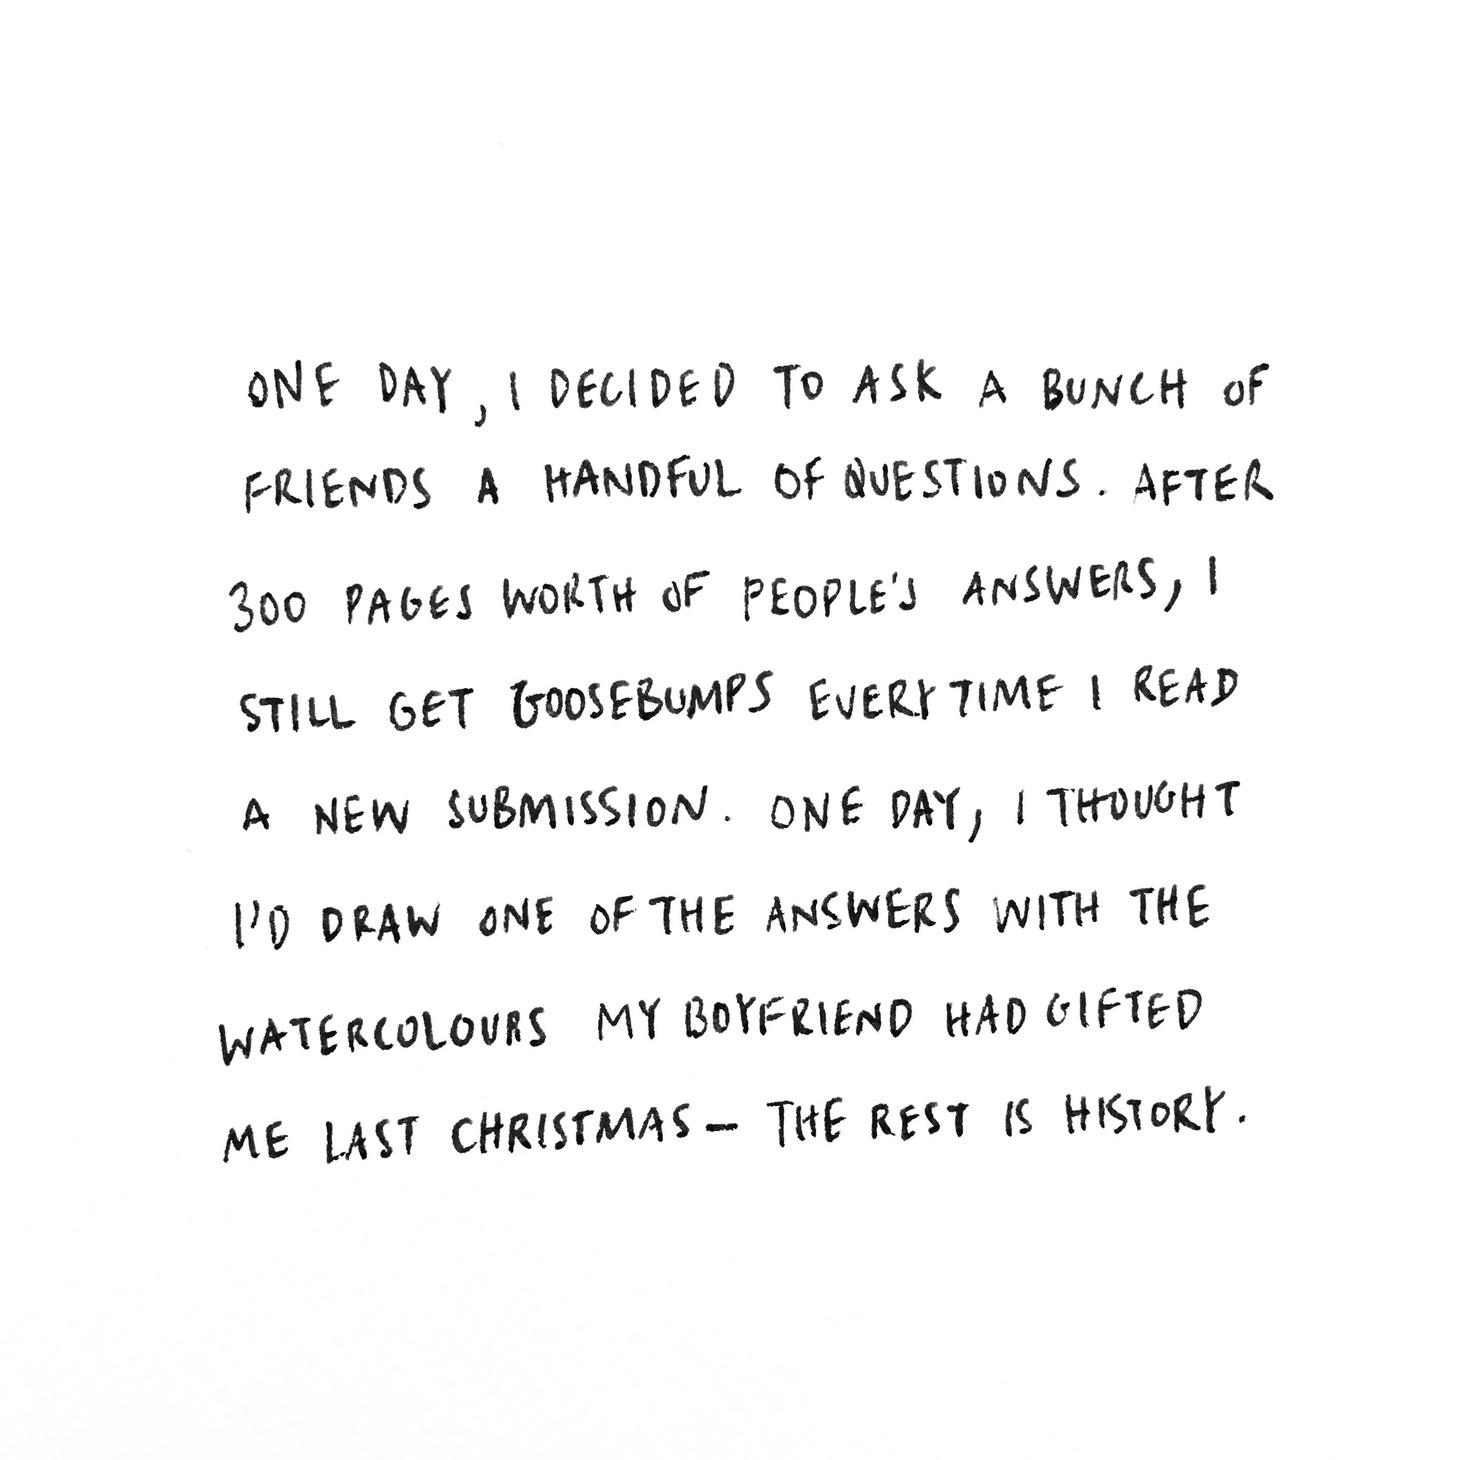 ONE DAY, I DECIDED TO ASK A BUNCH OF
FRIENDS A HANDFUL OF QUESTIONS. AFTER
300 PAGES WORTH OF PEOPLE'S ANSWERS, I
STILL GET GOOSEBUMPS EVERY TIME I READ
A NEW SUBMISSION. ONE DAY, I THOUGHT
I'D DRAW ONE OF THE ANSWERS WITH THE
WATERCOLOURS MY BOYFRIEND HAD GIFTED
ME LAST CHRISTMAS – THE REST IS HISTORY.